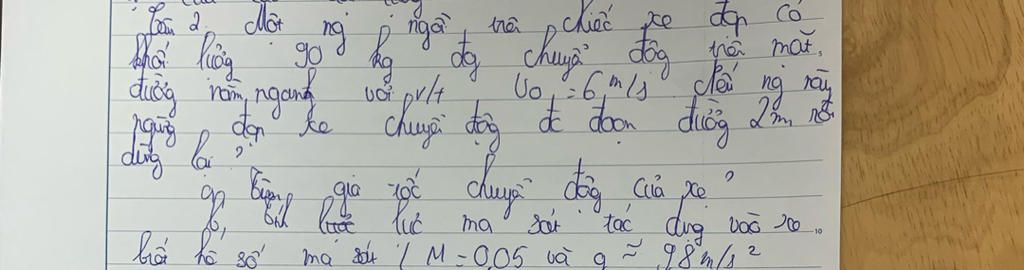 Câu 2. Một ng ngồi trên chiếc xe đạp có
khối lượng 90 kg đg chuyển động trên mặt
đường nằm ngang với v/t Vo = 6 m/s nếu ng này
ngừng đạp xe chuyển động đc đoạn đường 2m rồi
dừng lại ?
a, tìm gia tốc chuyển động của xe ?
b, tính lực ma sát tác dụng vào xe
biết hệ số ma sát M = 0,05 và g ≈ 9,8 m/s²